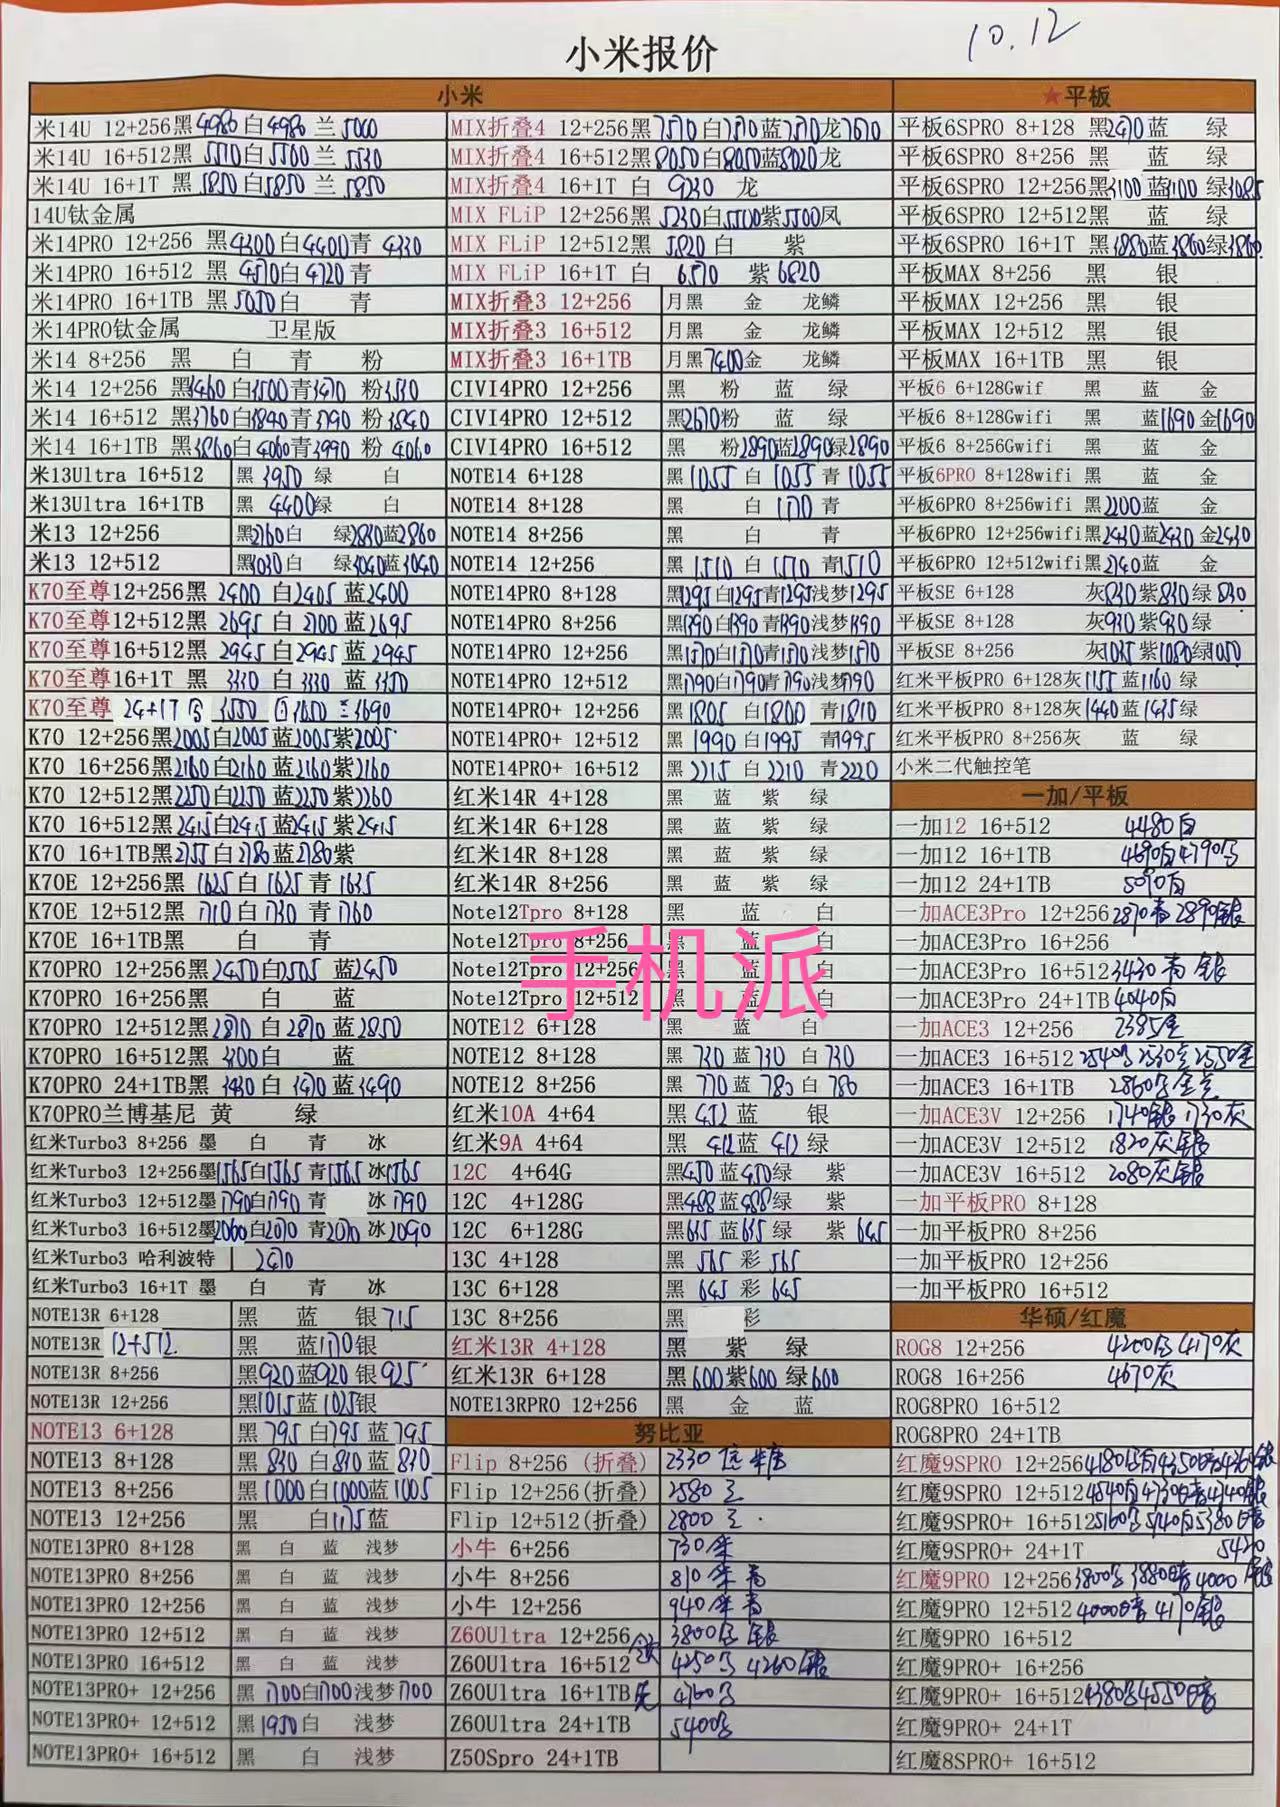 10.12
小米报价
小米
米14U 12+256黑4980白4980 兰5000
米14U 16+512黑5510白5500 兰5530
米14U 16+1T 黑5850白5850 兰5850
14U钛金属
米14PRO 12+256 黑4300白4400青4330
米14PRO 16+512 黑4570白4720青
米14PRO 16+1TB 黑5050白 青
米14PRO钛金属 卫星版
米14 8+256 黑 白 青 粉
米14 12+256 黑3460白3500青3470 粉3530
米14 16+512 黑3760白3840青3790 粉3840
米14 16+1TB 黑3860白4060青3990 粉4060
米13Ultra 16+512 黑3950绿 白
米13Ultra 16+1TB 黑4400绿 白
米13 12+256 黑2760白 绿2830蓝2860
米13 12+512 黑3030白 绿3040蓝3040
K70至尊12+256黑2400 白2405 蓝2400
K70至尊12+512黑2695 白2700 蓝2695
K70至尊16+512黑2945 白2945 蓝2945
K70至尊16+1T 黑3330 白3330 蓝3350
K70至尊 24+1T
K70 12+256黑2005白2005蓝2005紫2005
K70 16+256黑2160白2160蓝2160紫2160
K70 12+512黑2250白2250蓝2250紫2260
K70 16+512黑2415白2415蓝2415紫2415
K70 16+1TB黑2755白2780蓝2780紫
K70E 12+256黑1625白1625青1635
K70E 12+512黑1710白1730青1760
K70E 16+1TB黑 白 青
K70PRO 12+256黑2450白2505 蓝2450
K70PRO 16+256黑 白 蓝
K70PRO 12+512黑2870白2870蓝2850
K70PRO 16+512黑3200白 蓝
K70PRO 24+1TB黑3430白3470蓝3490
K70PRO兰博基尼 黄 绿
红米Turbo3 8+256 墨 白 青 冰
红米Turbo3 12+256墨1565白1565青1565冰1565
红米Turbo3 12+512墨1790白1790青 冰1790
红米Turbo3 16+512墨2060白2070青2070冰2090
红米Turbo3 哈利波特 2470
红米Turbo3 16+1T 墨 白 青 冰
NOTE13R 6+128 黑 蓝 银715
NOTE13R 12+512 黑 蓝1170银
NOTE13R 8+256 黑920蓝920银925
NOTE13R 12+256 黑1015蓝1025银
NOTE13 6+128 黑795白795蓝795
NOTE13 8+128 黑830白810蓝830
NOTE13 8+256 黑1000白1000蓝1005
NOTE13 12+256 黑 白1175蓝
NOTE13PRO 8+128 黑 白 蓝 浅梦
NOTE13PRO 8+256 黑 白 蓝 浅梦
NOTE13PRO 12+256 黑 白 蓝 浅梦
NOTE13PRO 12+512 黑 白 蓝 浅梦
NOTE13PRO 16+512 黑 白 蓝 浅梦
NOTE13PRO+ 12+256 黑1700白1700浅梦1700
NOTE13PRO+ 12+512 黑1950白 浅梦
NOTE13PRO+ 16+512 黑 白 浅梦
MIX折叠4 12+256黑7570白7570蓝7570龙7670
MIX折叠4 16+512黑8050白8050蓝8020龙
MIX折叠4 16+1T 白 9230 龙
MIX FLiP 12+256黑5230白5500紫5500凤
MIX FLiP 12+512黑5820白 紫
MIX FLiP 16+1T 白 6570 紫6820
MIX折叠3 12+256 月黑 金 龙鳞
MIX折叠3 16+512 月黑 金 龙鳞
MIX折叠3 16+1TB 月黑7400金 龙鳞
CIVI4PRO 12+256 黑 粉 蓝 绿
CIVI4PRO 12+512 黑2670粉 蓝 绿
CIVI4PRO 16+512 黑 粉2890蓝2890绿2890
NOTE14 6+128 黑1055白1055青1055
NOTE14 8+128 黑 白1170青
NOTE14 8+256 黑 白 青
NOTE14 12+256 黑1510白1510青1510
NOTE14PRO 8+128 黑1295白1295青1295浅梦1295
NOTE14PRO 8+256 黑1390白1390青1390浅梦1390
NOTE14PRO 12+256 黑1570白1570青1570浅梦1570
NOTE14PRO 12+512 黑1790白1790青1790浅梦1790
NOTE14PRO+ 12+256 黑1805 白1800 青1810
NOTE14PRO+ 12+512 黑1990白1995 青1995
NOTE14PRO+ 16+512 黑2215白2210青2220
红米14R 4+128 黑 蓝 紫 绿
红米14R 6+128 黑 蓝 紫 绿
红米14R 8+128 黑 蓝 紫 绿
红米14R 8+256 黑 蓝 紫 绿
Note12Tpro 8+128 黑 蓝 白
Note12Tpro 8+256 黑 蓝 白
Note12Tpro 12+256 黑 蓝 白
Note12Tpro 12+512 黑 蓝 白
手机派
NOTE12 6+128 黑 蓝 白
NOTE12 8+128 黑730蓝730白730
NOTE12 8+256 黑770蓝780白780
红米10A 4+64 黑452蓝 银
红米9A 4+64 黑412蓝412绿
12C 4+64G 黑450蓝450绿 紫
12C 4+128G 黑488蓝488绿 紫
12C 6+128G 黑635蓝635绿 紫645
13C 4+128 黑565彩565
13C 6+128 黑645彩645
13C 8+256 黑 彩
红米13R 4+128 黑 紫 绿
红米13R 6+128 黑600紫600绿600
NOTE13RPRO 12+256 黑 金 蓝
努比亚
Flip 8+256 (折叠) 2330
Flip 12+256(折叠) 2580
Flip 12+512(折叠) 2800
小牛 6+256 730
小牛 8+256 810
小牛 12+256 940
Z60Ultra 12+256 3800
Z60Ultra 16+512 4250 4260
Z60Ultra 16+1TB 4760
Z60Ultra 24+1TB 5400
Z50Spro 24+1TB
★平板
平板6SPRO 8+128 黑2470蓝 绿
平板6SPRO 8+256 黑 蓝 绿
平板6SPRO 12+256黑3100蓝3100绿3085
平板6SPRO 12+512黑 蓝 绿
平板6SPRO 16+1T 黑3880蓝3860绿3860
平板MAX 8+256 黑 银
平板MAX 12+256 黑 银
平板MAX 12+512 黑 银
平板MAX 16+1TB 黑 银
平板6 6+128Gwif 黑 蓝 金
平板6 8+128Gwifi 黑 蓝1690金1690
平板6 8+256Gwifi 黑 蓝 金
平板6PRO 8+128wifi 黑 蓝 金
平板6PRO 8+256wifi 黑2200蓝 金
平板6PRO 12+256wifi黑2430蓝2430金2430
平板6PRO 12+512wifi黑2740蓝 金
平板SE 6+128 灰830紫830绿830
平板SE 8+128 灰930紫930绿
平板SE 8+256 灰1035紫1080绿1050
红米平板PRO 6+128灰1155蓝1160绿
红米平板PRO 8+128灰1440蓝1435绿
红米平板PRO 8+256灰 蓝 绿
小米二代触控笔
一加/平板
一加12 16+512 4480白
一加12 16+1TB 4690白4790
一加12 24+1TB 5090白
一加ACE3Pro 12+256 2870青2890银
一加ACE3Pro 16+256
一加ACE3Pro 16+512 3430青 银
一加ACE3Pro 24+1TB 4040白
一加ACE3 12+256 2385金
一加ACE3 16+512 2540 2530 2550金
一加ACE3 16+1TB 2860
一加ACE3V 12+256 1740银1730灰
一加ACE3V 12+512 1820灰银
一加ACE3V 16+512 2080灰银
一加平板PRO 8+128
一加平板PRO 8+256
一加平板PRO 12+256
一加平板PRO 16+512
华硕/红魔
ROG8 12+256 4200 4170灰
ROG8 16+256 4670灰
ROG8PRO 16+512
ROG8PRO 24+1TB
红魔9SPRO 12+256 4180
红魔9SPRO 12+512 4540
红魔9SPRO+ 16+512 5160
红魔9SPRO+ 24+1T
红魔9PRO 12+256 3800 3880暗4000
红魔9PRO 12+512 4000暗4170银
红魔9PRO 16+512
红魔9PRO+ 16+256
红魔9PRO+ 16+512 4380 4550暗
红魔9PRO+ 24+1T
红魔8SPRO+ 16+512